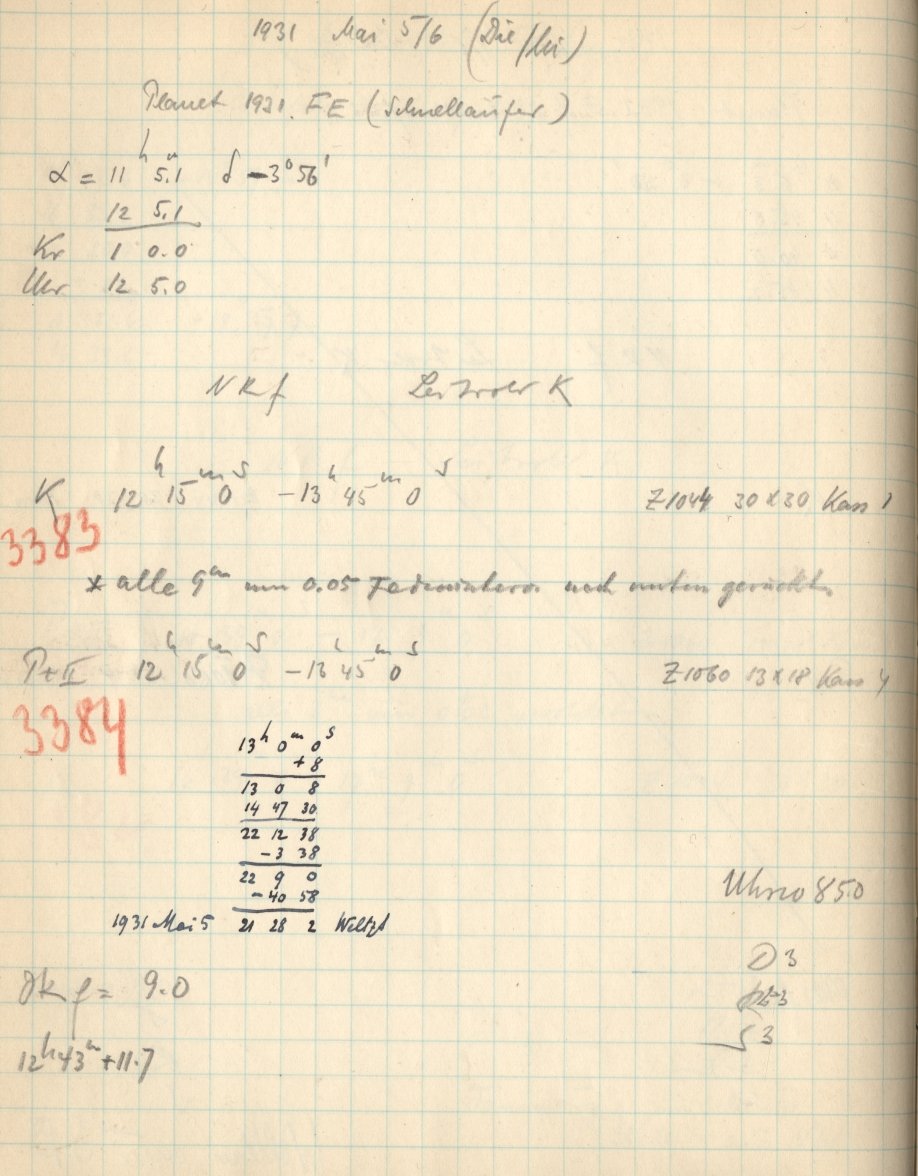 1931 Mai 5/6 (Die/Mi)
Planet 1931 FE (Schnelläufer)
α = 11ʰ 5.1ᵐ δ −3°56'
12 5.1
Kr 1 0.0
Uhr 12 5.0
NRf Leitrohr K
K 12ʰ 15ᵐ 0ˢ −13ʰ 45ᵐ 0ˢ Z1044 30×30 Kass 1
3383
* alle 9ᵐ um 0.05 nach unten gerückt.
12ʰ 15ᵐ 0ˢ −13ʰ 45ᵐ 0ˢ Z1060 13×18 Kass 4
3384
13ʰ 0ᵐ 0ˢ
+8
13 0 8
14 47 30
22 12 38
−3 38
22 9 0
−40 58
1931 Mai 5 21 28 2 Weltzt
850
D3
9.0
3
S3
12ʰ43ᵐ+11.7